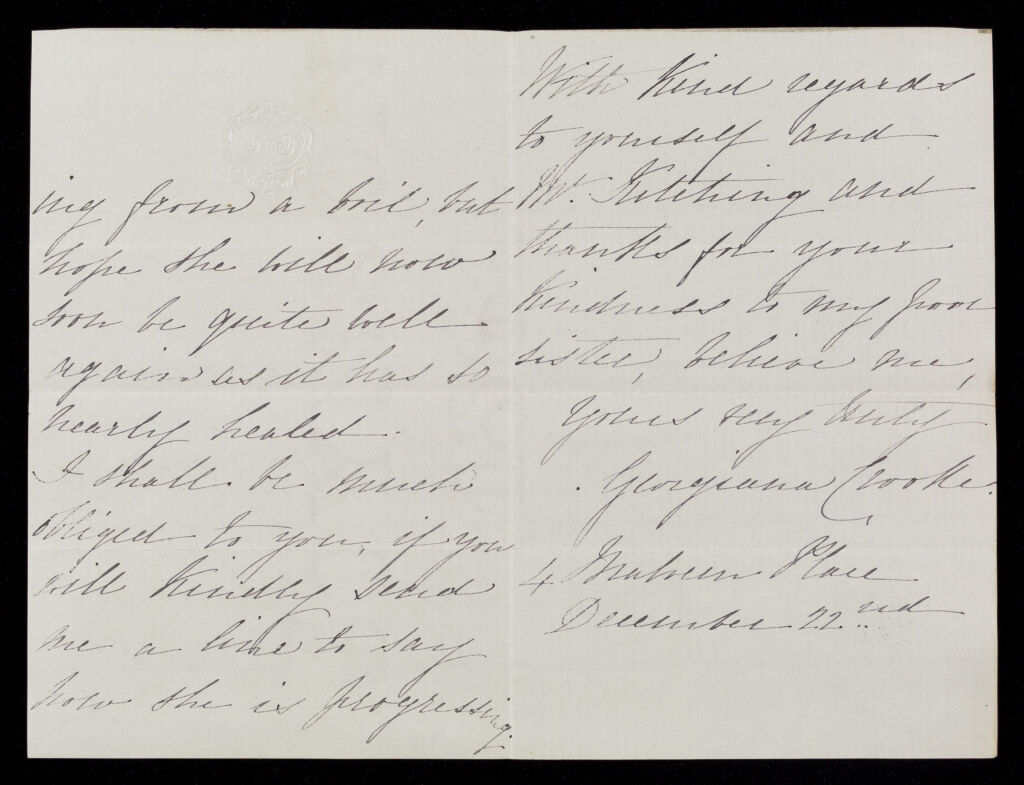 ing from a boil, but
hope she will now
soon be quite well
again as it has so
nearly healed.
I shall be much
obliged to you, if you
will kindly send
me a line to say
how she is progressing.
With Kind regards
to yourself and
Mr. Kitching and
thanks for your
Kindness to my poor
sister, believe me,
yours very truly
Georgiana Cooke.
4 Malvern Place
December 22nd